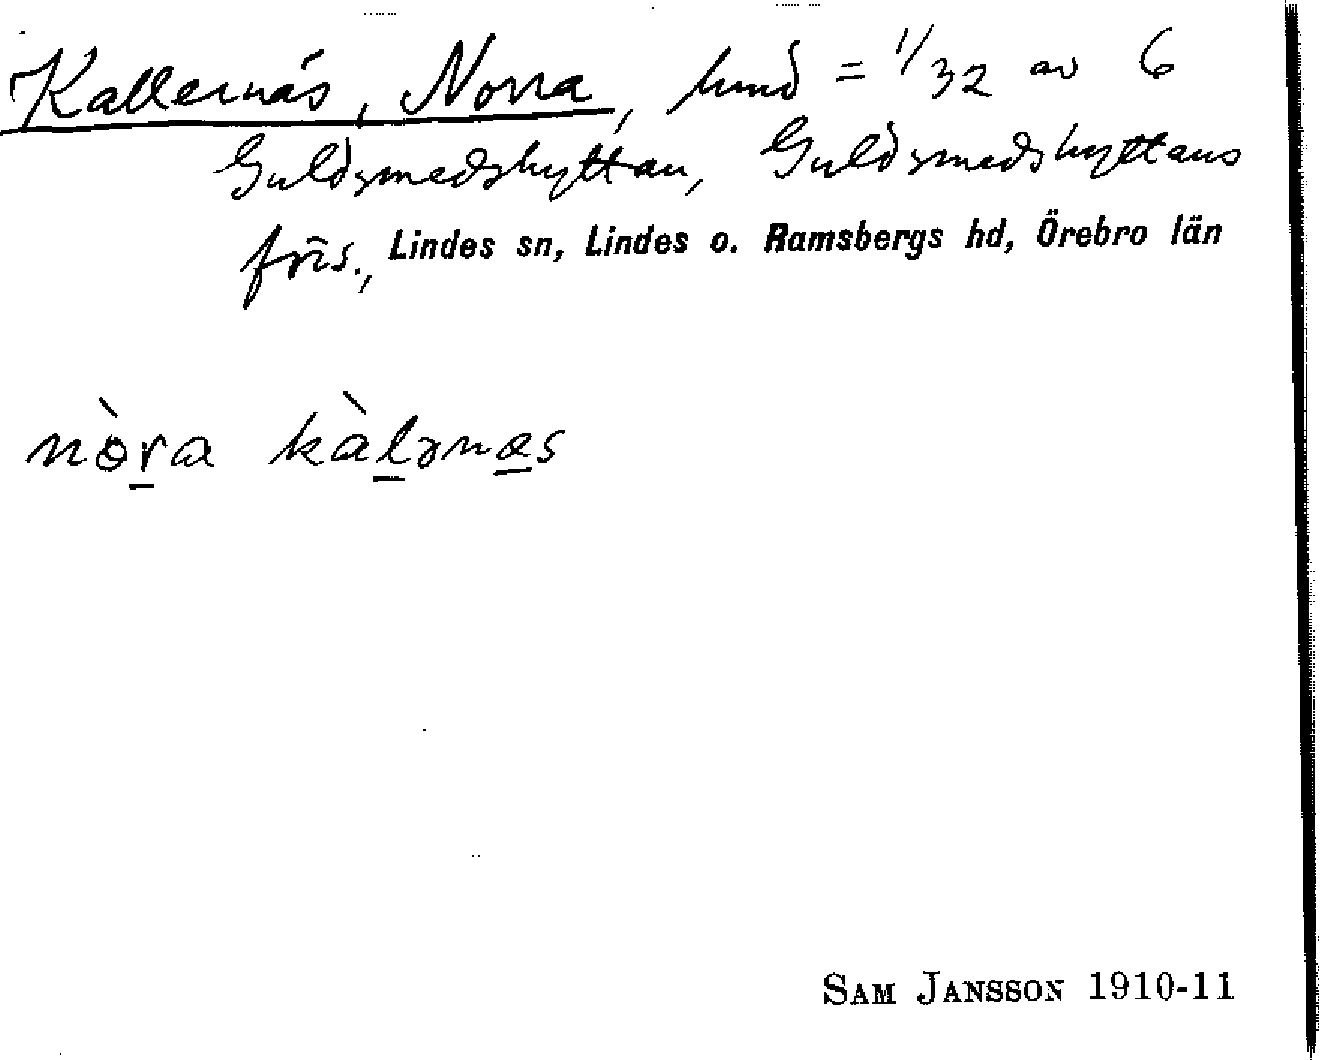 Kallernäs, Norra, hmd = 1/32 av 6
Guldsmedshyttan, Guldsmedshyttans
förs., Lindes sn, Lindes o. Ramsbergs hd, Örebro län
nòra kàlənæs
SAM JANSSON 1910-11